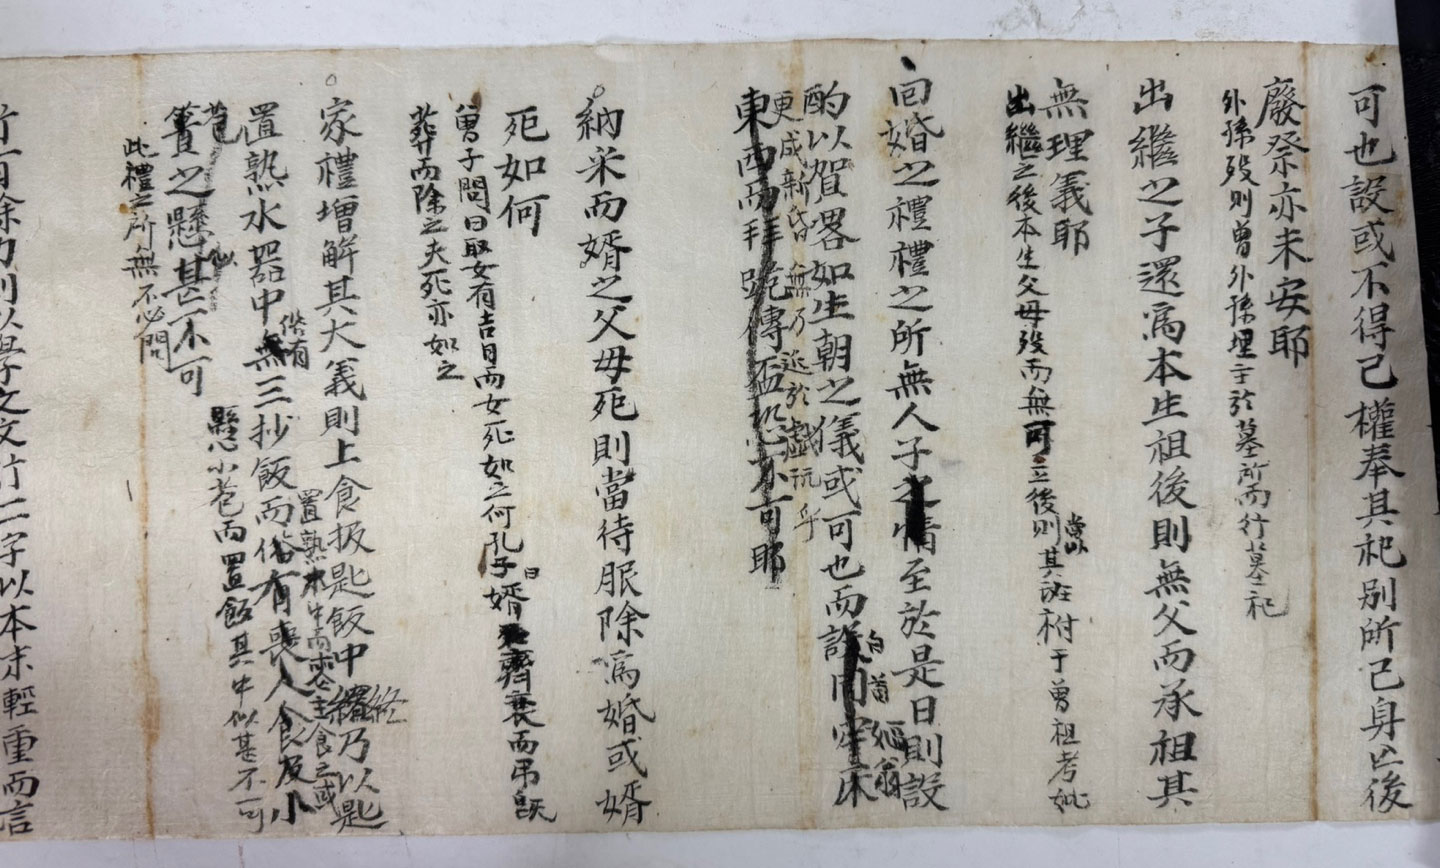 可也設或不得已權奉其祀別所己身亡後
廢祭亦未安耶
外孫歿則曾外孫埋主於墓所而行墓祀
出繼之子還爲本生祖後則無父而承祖其
無理義耶
出繼之後本生父母歿而無可立後則當以其班祔于曾祖考妣
回婚之禮禮之所無人子之情至於是日則設
酌以賀畧如生朝之儀或可也而白首嫗翁
更成新昏無乃近於戲玩乎
東西兩拜
耶
納采而婿之父母死則當待服除爲婚或婿
死如何
曾子問曰取女有吉日而女死如之何孔子曰婿齊衰而弔旣
葬而除之夫死亦如之
家禮增解其大義則上食扱匙飯中終乃以匙
置熟水器中無三抄飯而俗有喪人食及小
俗有
置熟水中而
主食之或
懸小卷而置飯其中似甚不可
之懸似甚不可
此禮之所無不必問
以學文文行二字以本末輕重而言